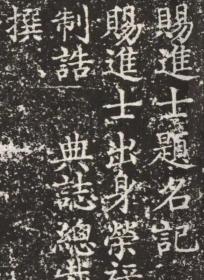 賜進士題名記
賜進士出身榮祿
制誥　典誌總裁
撰